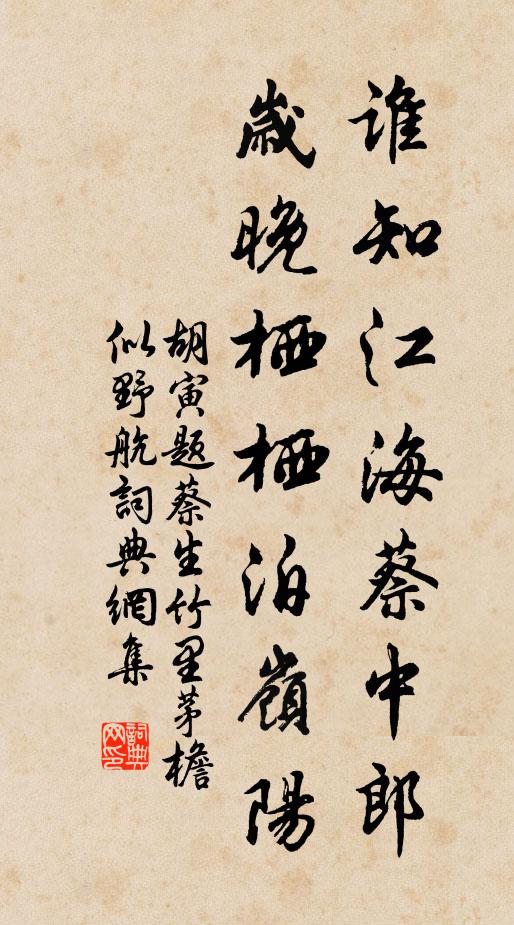 誰知江海蔡中郎
歲晚栖栖泊嶺陽
胡寅題蔡生竹里茅檐
似野航詞典網集
詞典網印